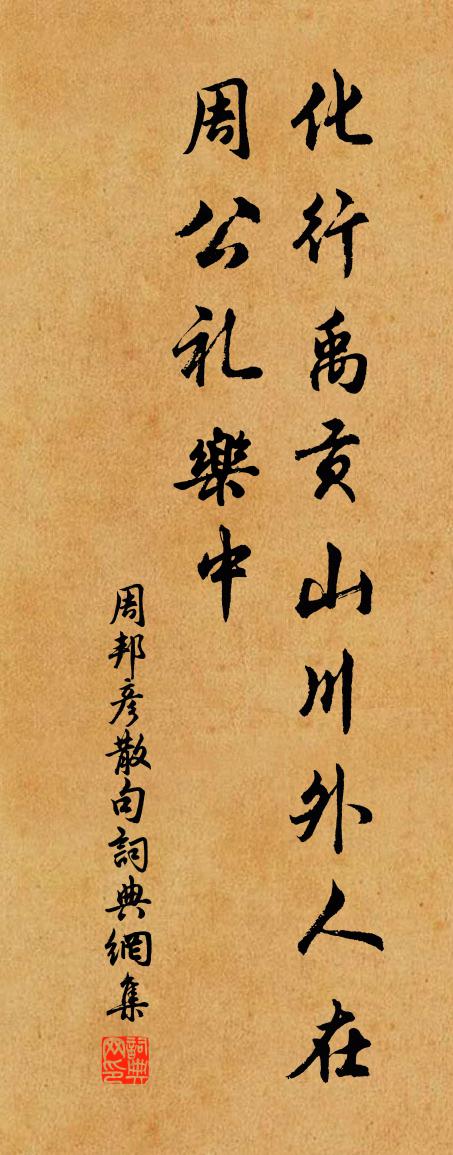 化行禹贡山川外人在
周公礼樂中
周邦彦散句詞典網集
詞典
网印